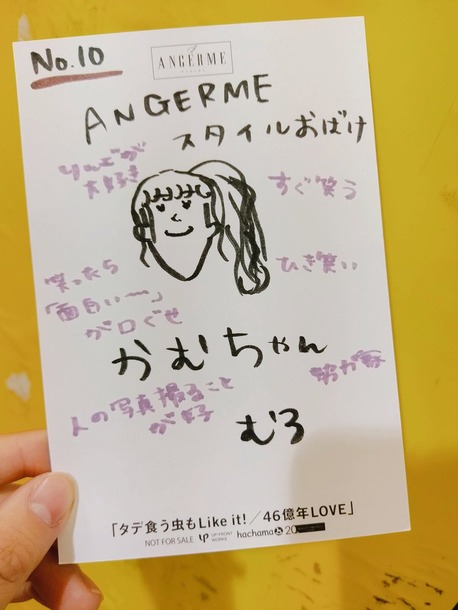 No.10
ANGERME
ANGERME
スタイルおばけ
りんごが
大好き
すぐ笑う
笑ったら
「面白いー」
が口ぐせ
ひき笑い
かむちゃん
努力家
人の写真撮ること
が好
むろ
「タデ食う虫もLike it!／46億年LOVE」
NOT FOR SALE UP-FRONT WORKS hachama 20